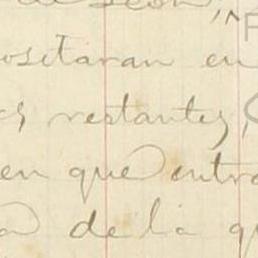 de Leon,
ositaran en
s restantes,
en que entra
a de la q